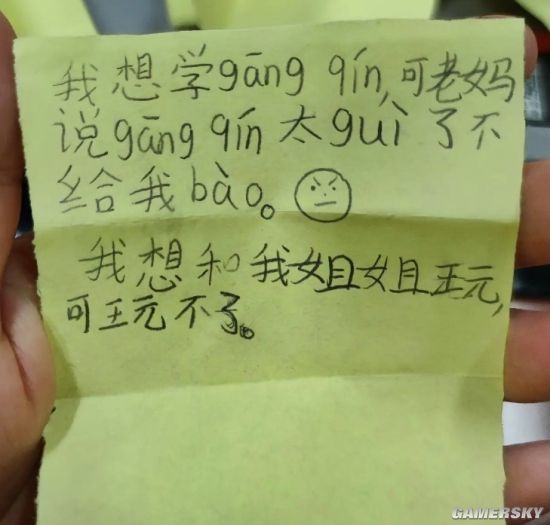 我想学gāng qín,可老妈
说gāng qín太guì了不
给我bào。
我想和我姐姐王元,
可王元不了。
GAMERSKY